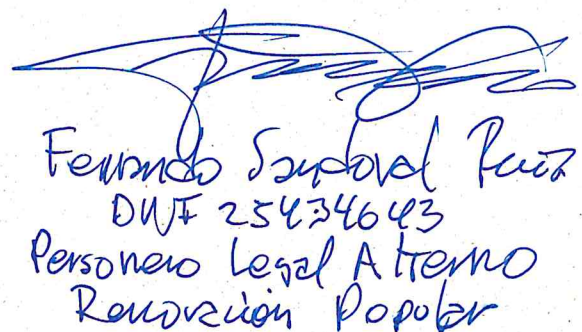 Fernando Sandoval Ruiz
DNI 25434643
Personero Legal Alterno
Renovación Popular